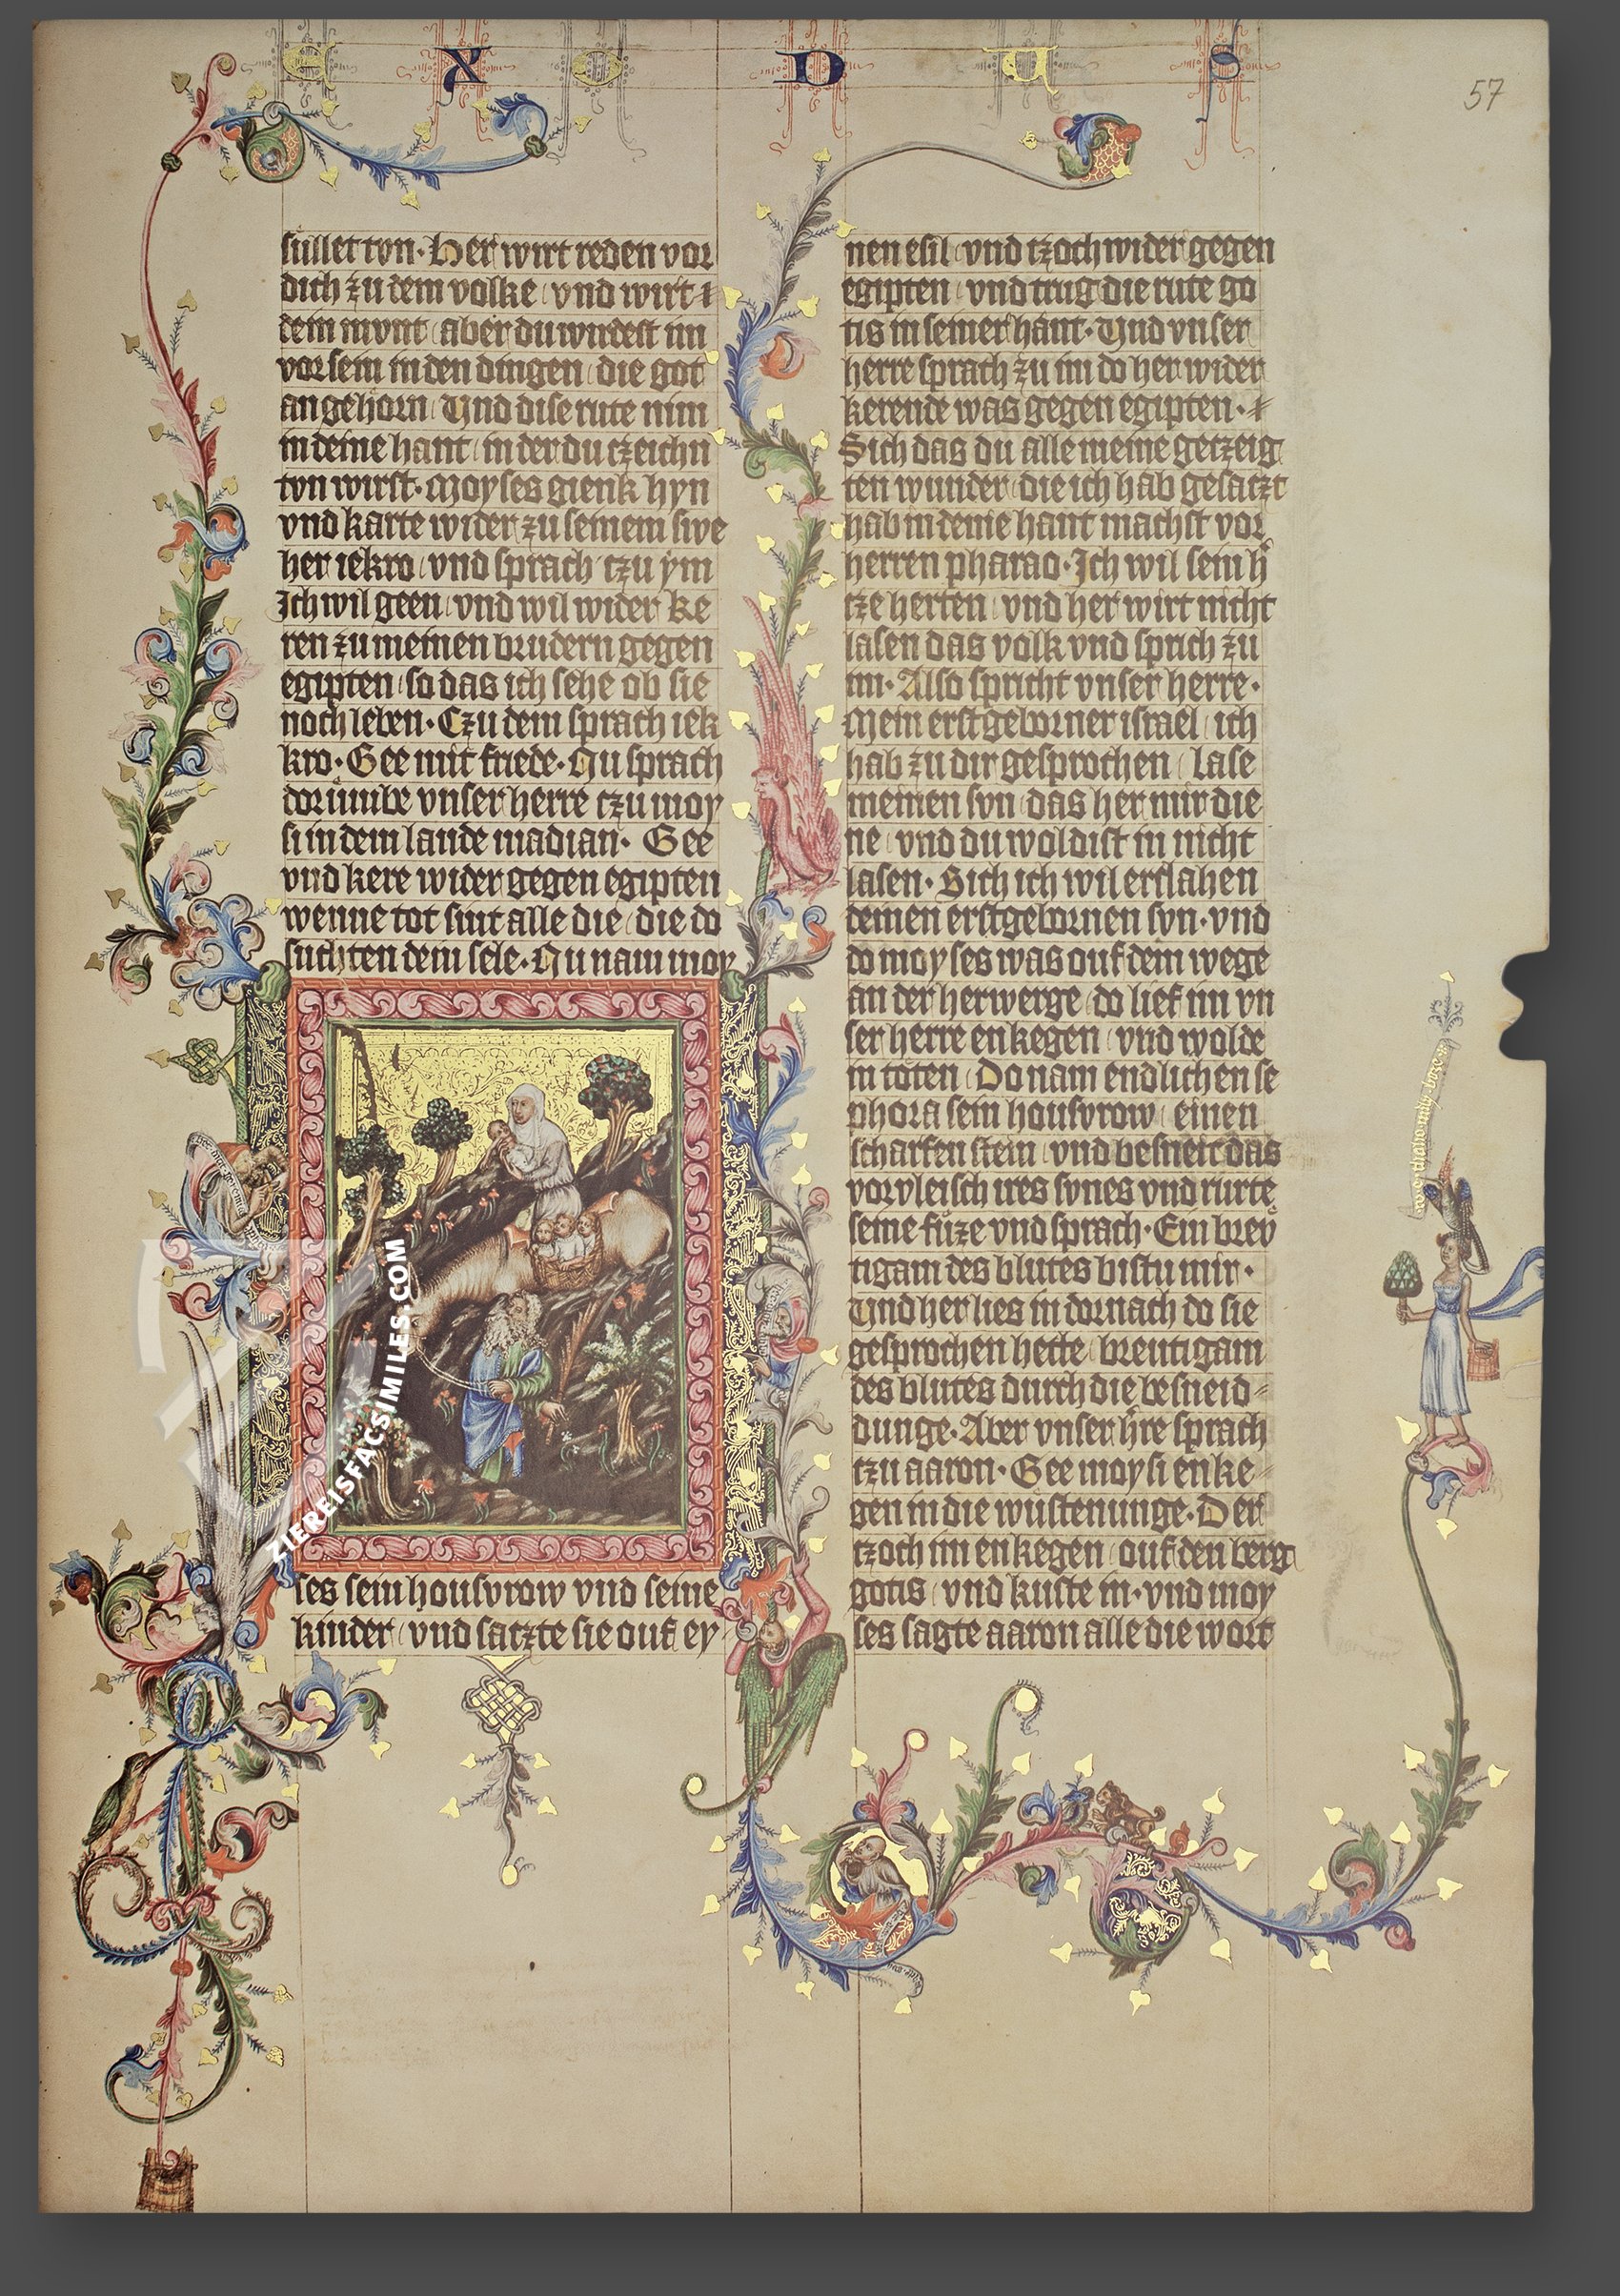 E X O D U S
57
fullet ton · Her wirt reden vor
dich zu dem volke vnd wirt
dein mvnt aber du wirdest im
vor sein in den dingen die got
an gehorn Vnd dise rute nim
in deine hant in der du tzeichn
ton wirst · Moyses gienk hyn
vnd karte wider zu seinem swe
her iekro vnd sprach tzu ym
Ich wil geen vnd wil wider ke
ren zu meinen brudern gegen
egipten so das ich sehe ob sie
noch leben · Czu dem sprach iek
kro · Gee mit friede · Nu sprach
dorumbe vnser herre tzu moy
si in dem lande madian · Gee
vnd kere wider gegen egipten
wenne tot sint alle die die do
suchten dein sele · Nu nam moy
ses sein housvrow vnd seine
kinder vnd satzte sie ouf ey
nen esil vnd tzoch wider gegen
egipten vnd trug die rute go
tis in seiner hant · Vnd vnser
herre sprach zu im do her wider
kerende was gegen egipten ·
Sich das du alle meine getzeig
ten wunder die ich hab gesatzt
hab in deine hant machst vor
herren pharao · Ich wil sein h
tze herten vnd her wirt nicht
lasen das volk vnd sprich zu
im · Also spricht vnser herre ·
Mein erstgeborner israel ich
hab zu dir gesprochen Lase
meinen svn das her mir die
ne vnd du woldist in nicht
lasen · Sich ich wil erslahen
deinen erstgebornen svn · vnd
do moyses was ouf dem wege
an der herwerge do lief im vn
ser herre enkegen vnd wolde
in töten Do nam endlichen se
phora sein housvrow einen
scharfen stein vnd besneit das
vorvleisch ires svnes vnd rurte
seine fuze vnd sprach · Ein brev
tigam des blutes bistu mir ·
Vnd her lies in dornach do sie
gesprochen hette breutigam
des blutes durch die besneid
dunge · Aber vnser h̄re sprach
tzu aaron · Gee moysi enke
gen in die wüstenunge · Der
tzoch im enkegen ouf den berg
gotis vnd kuste in · vnd moy
ses sagte aaron alle die wort
ZIEREISFACSIMILES.COM